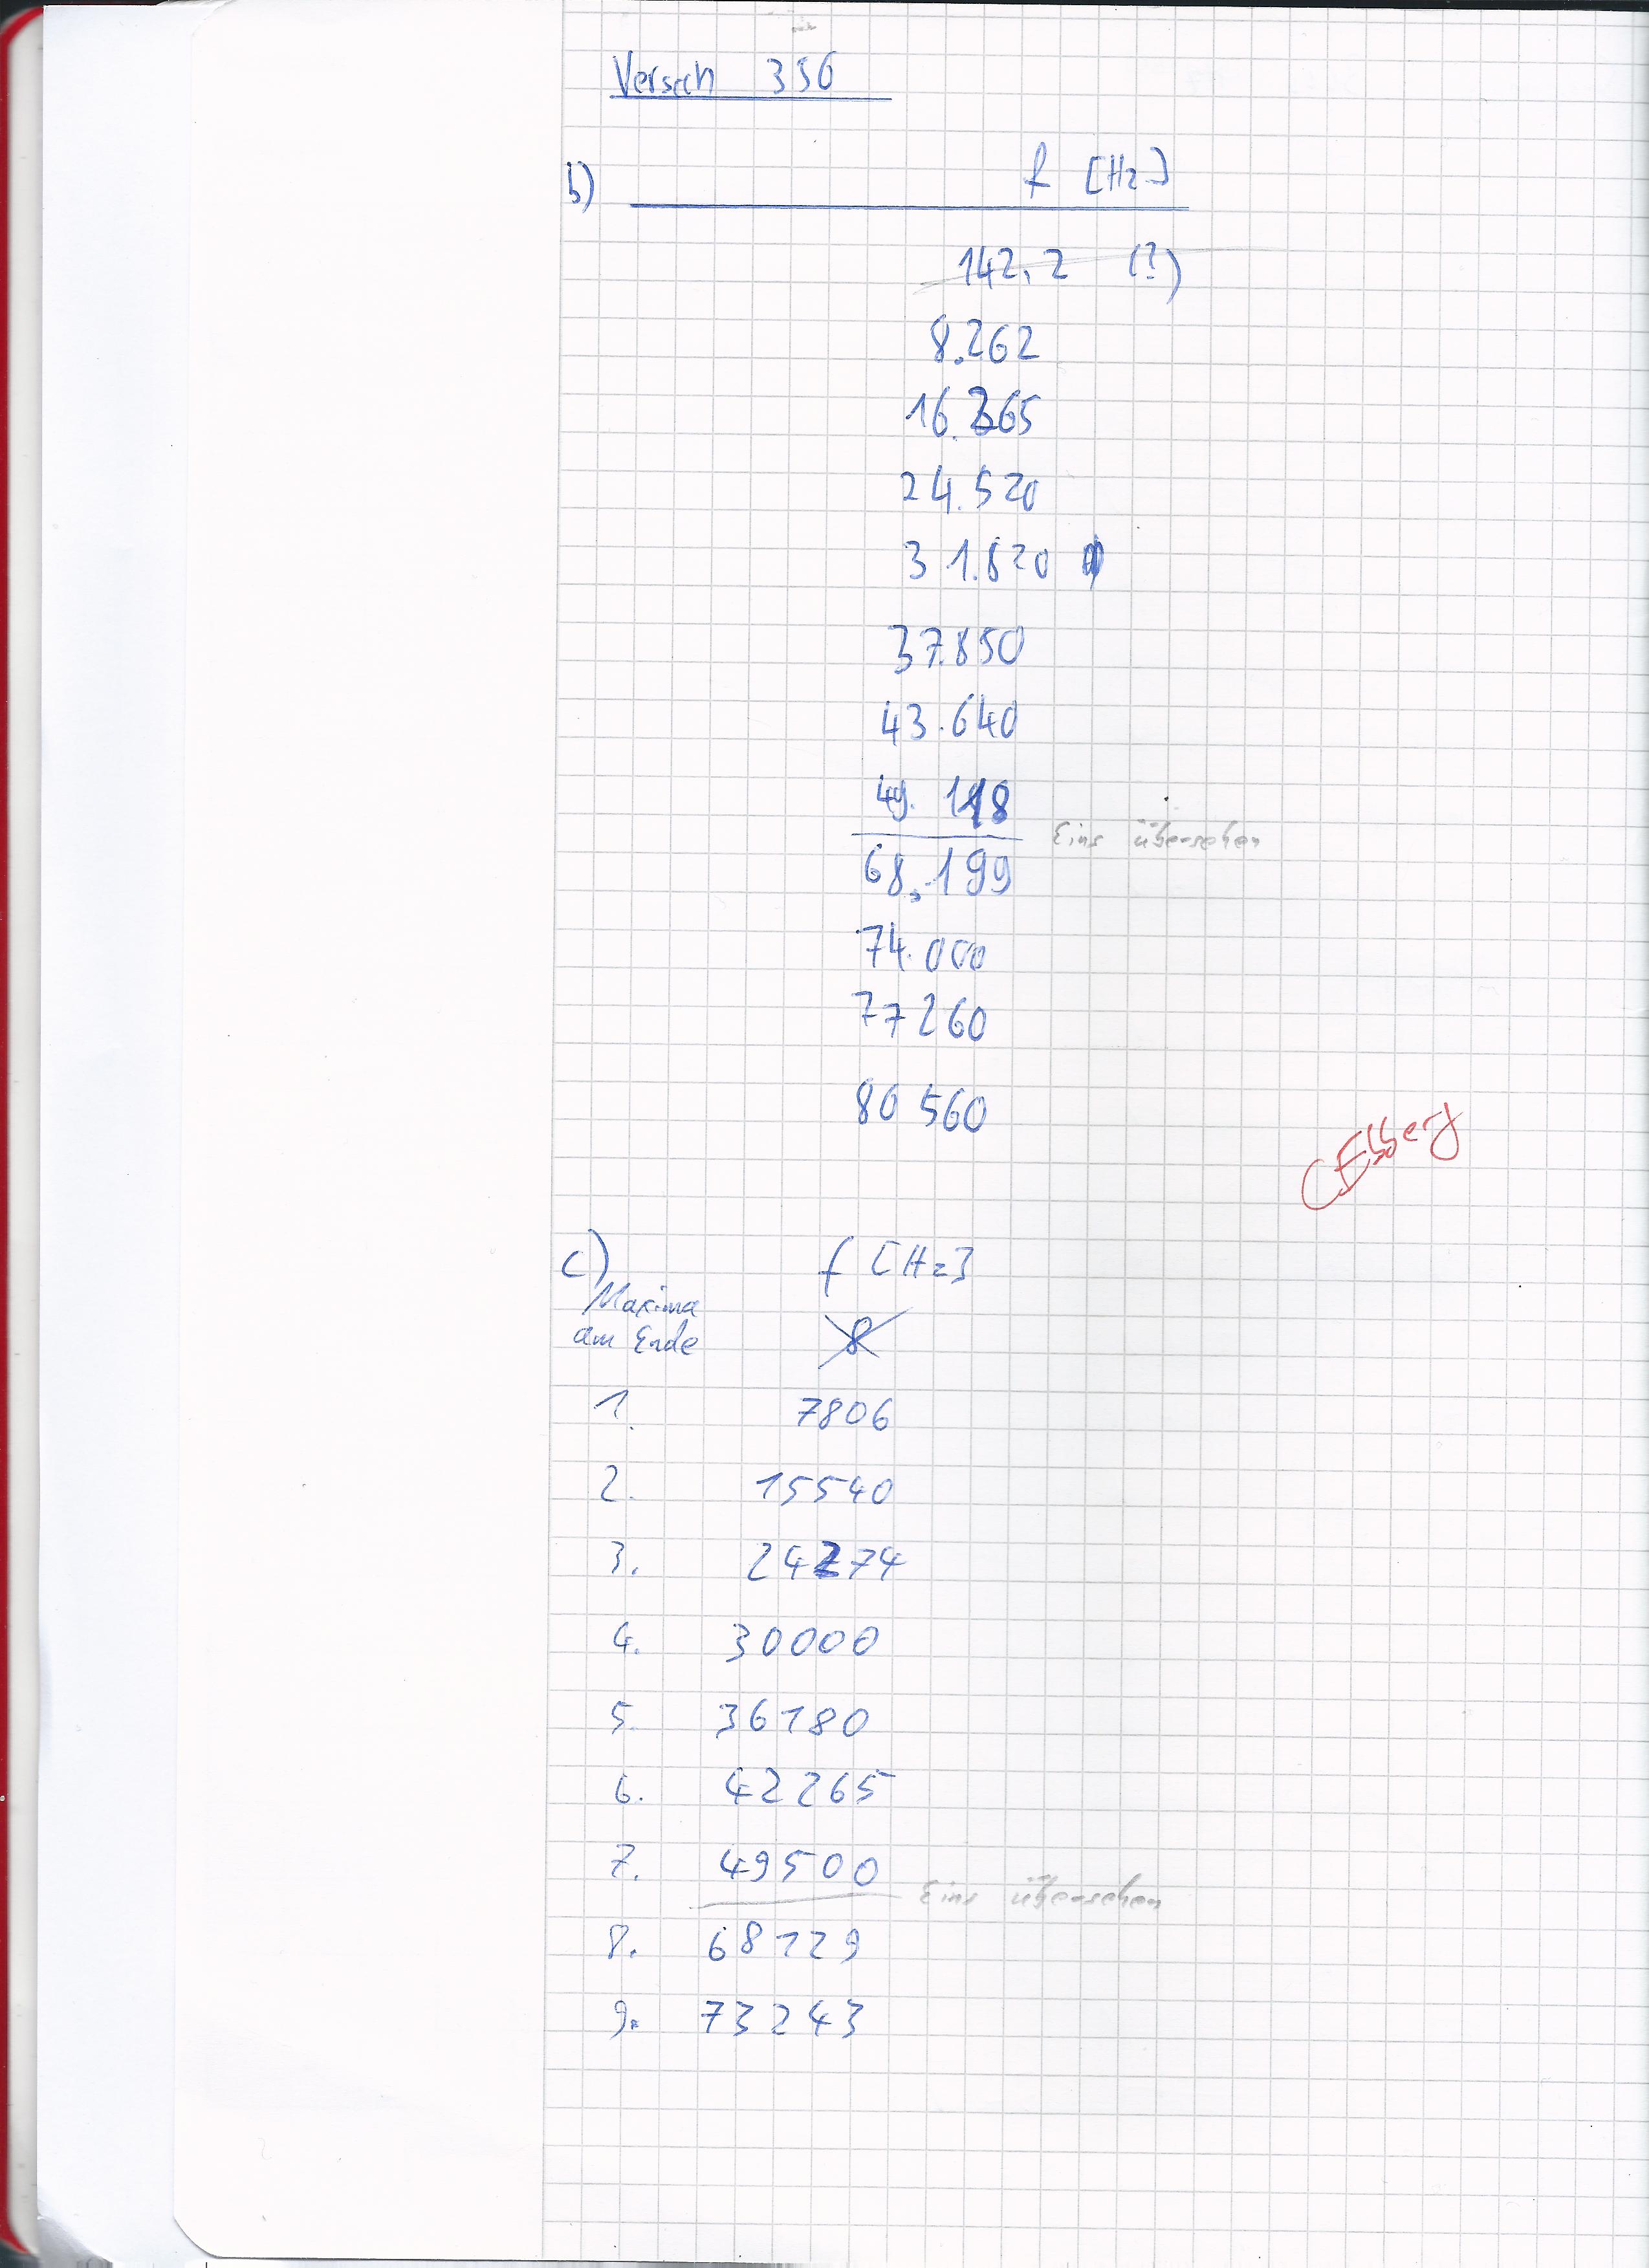 Versuch 356
b) f [Hz]
142,2 (?)
8.262
16.365
24.520
31.820
37.850
43.640
49.118
Eins übersehen
68.199
74.000
77260
80560
c) f [Hz]
Maxima
am Ende
1. 7806
2. 15540
3. 24274
4. 30000
5. 36180
6. 42265
7. 49500
Eins übersehen
8. 68129
9. 73243